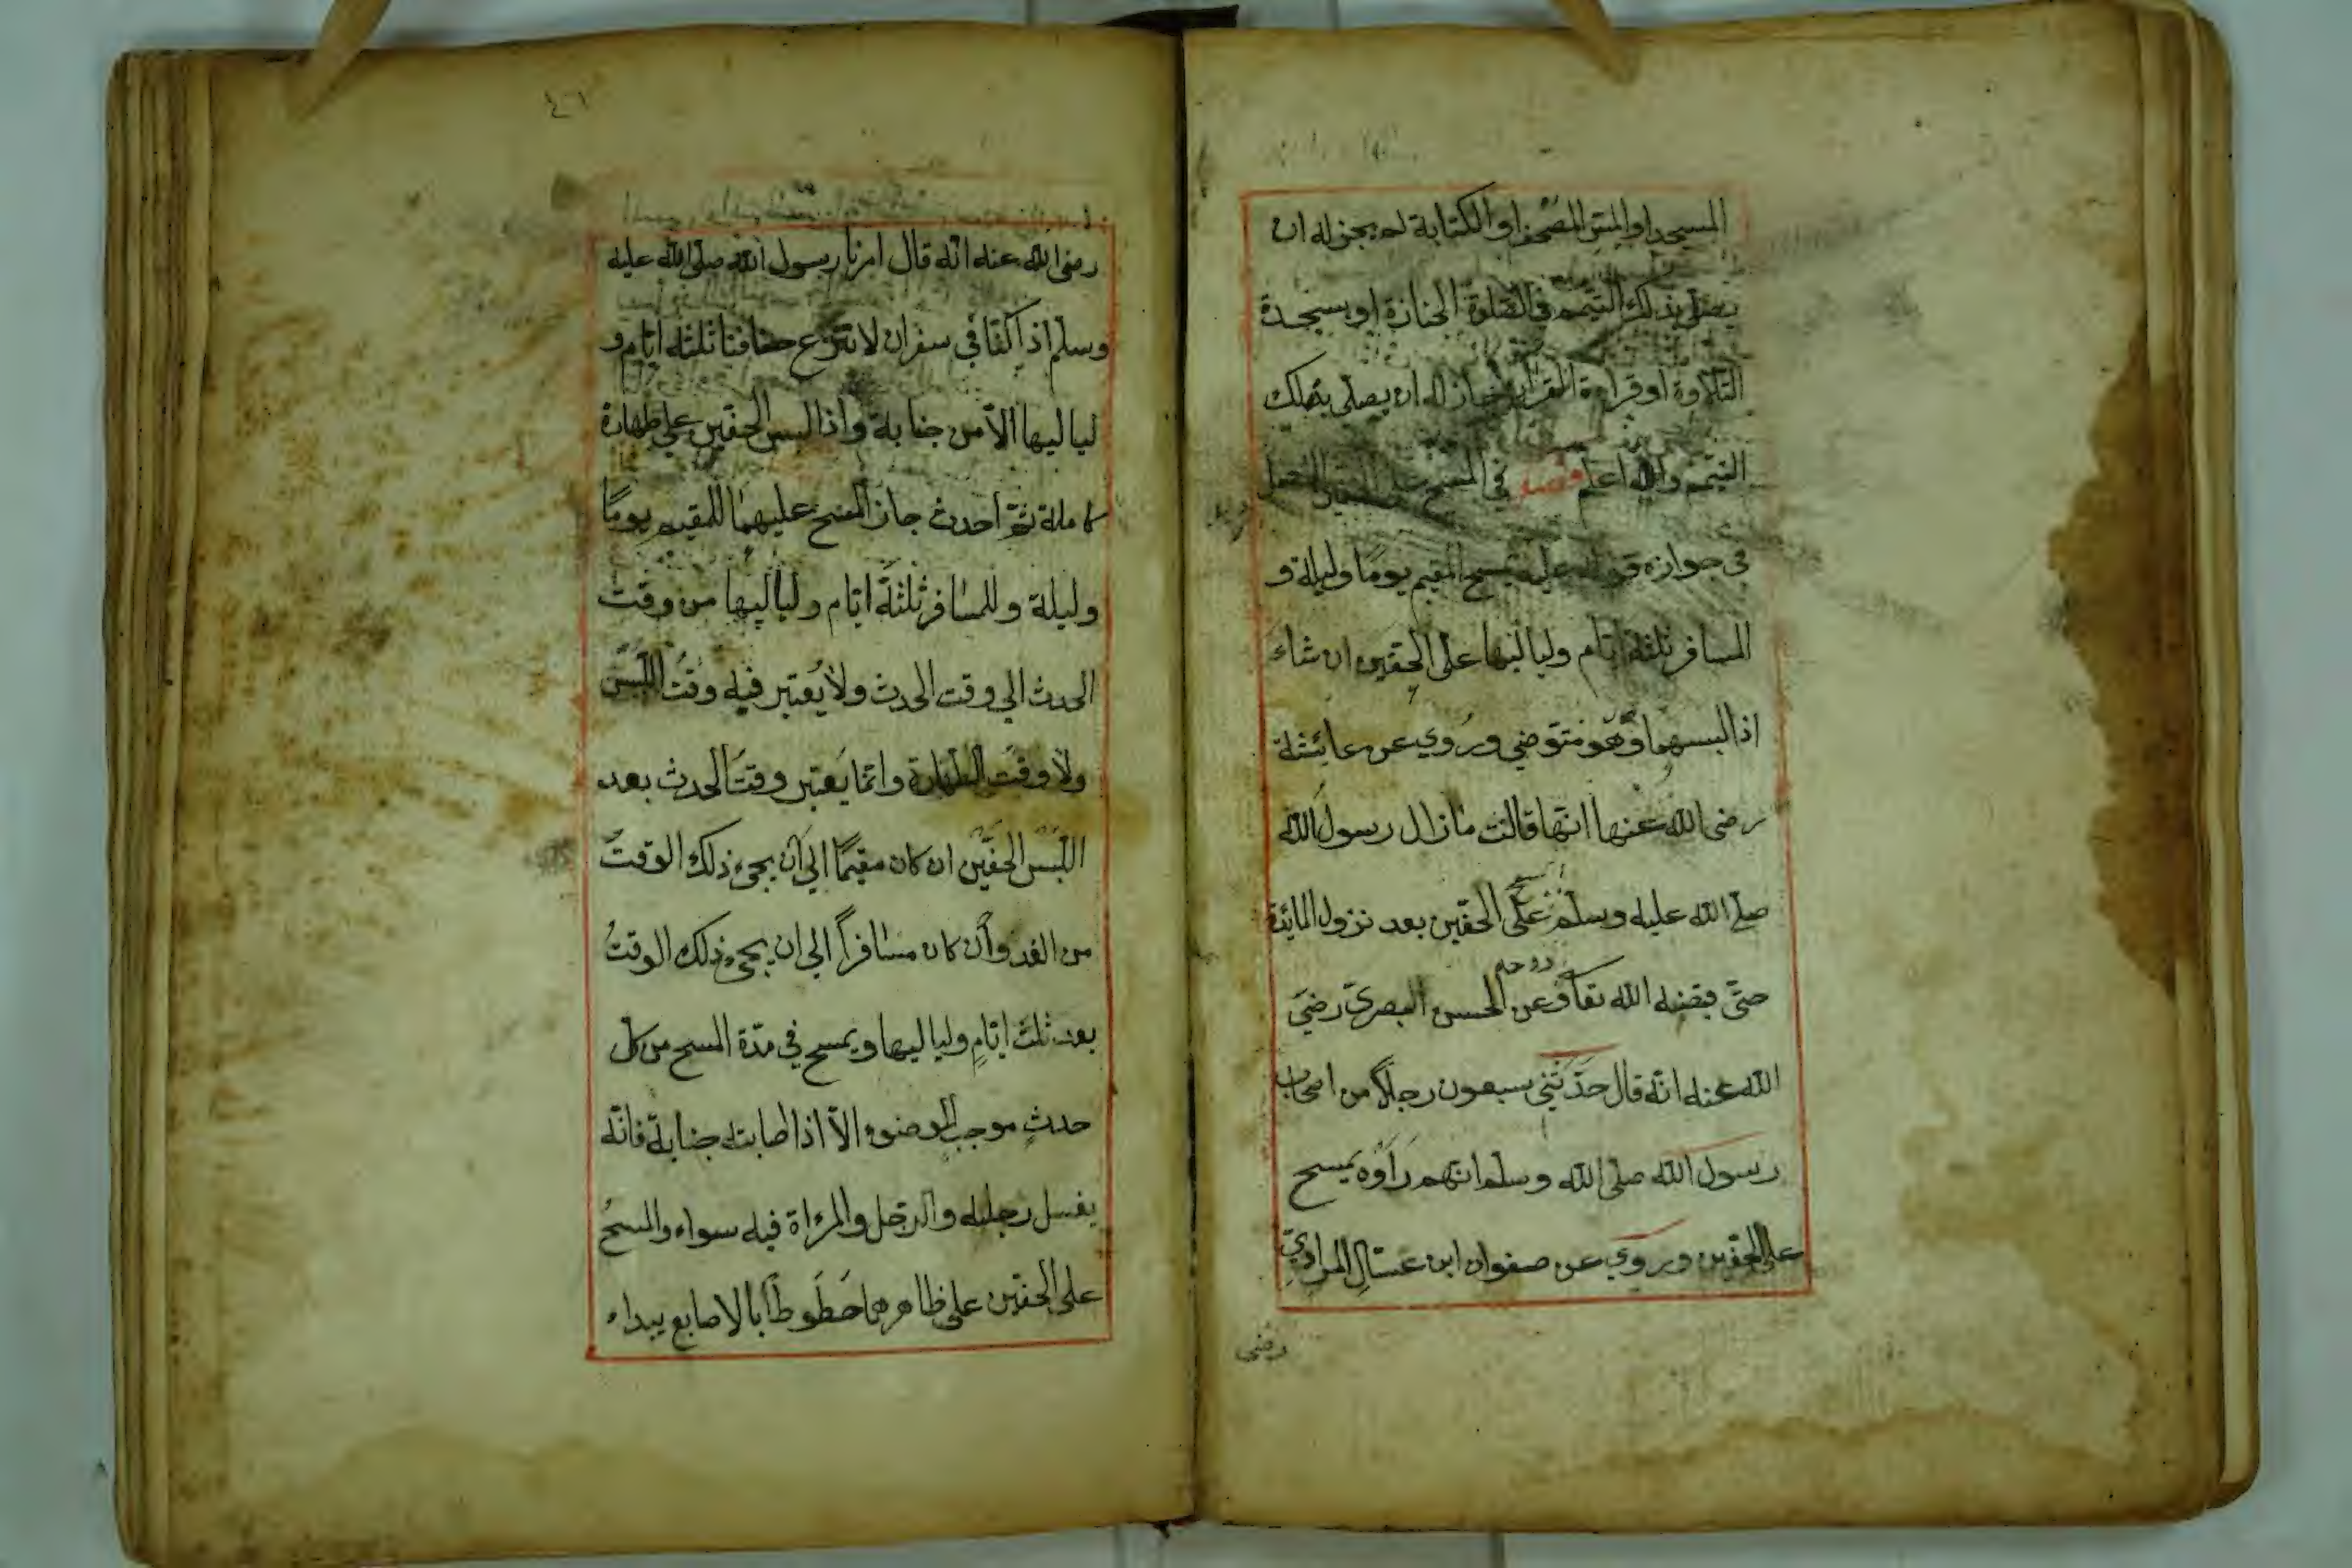 المسجد او المس المصحف او الكتابة لم يجز له ان
يصلى بذلك التيمم فالصلوة الجنازة او سجدة
التلاوة او قراءة القرآن جاز له ان يصلى بذلك
التيمم والله اعلم فصل في المسح على
في جوازه قوله عليه يمسح المقيم يوما وليلة و
المسافر ثلثة ايام ولياليها على الخفين ان شاء
اذا لبسهما وهو متوضي وروي عن عائشة
رضى الله عنها انها قالت ما زال رسول الله
صلى الله عليه وسلم يمسح على الخفين بعد نزول المائدة
حتى قبضه الله تعالى وعن الحسن البصرى رضي
الله عنه انه قال حدثني سبعون رجلاً من اصحاب
رسول الله صلى الله وسلم انهم رأوه يمسح
على الخفين وروي عن صفوان ابن عسال المرادي
رضى
٤١
رضى الله عنه انه قال امرنا رسول الله صلى الله عليه
وسلم اذا كنا في سفر ان لا ننزع خفافنا ثلثة ايام و
لياليها الا من جنابة واذا لبس الخفين على طهارة
كاملة ثم احدث جاز المسح عليهما للمقيم يوما
وليلة وللمسافر ثلثة ايام ولياليها من وقت
الحدث الي وقت الحدث ولا يعتبر فيه وقت اللبس
ولا وقت الطهارة وانما يعتبر وقت الحدث بعد
اللبس الخفين ان كان مقيما الي ان يجيء ذلك الوقت
من الغد وان كان مسافراً الي ان يجيء ذلك الوقت
بعد ثلث ايام ولياليها ويمسح في مدة المسح من كل
حدث موجب الوضوء الا اذا اصابته جنابة فانه
يغسل رجليه والرجل والمرءاة فيه سواء والمسح
على الخفين على ظاهرهما خطوطا بالاصابع يبداء